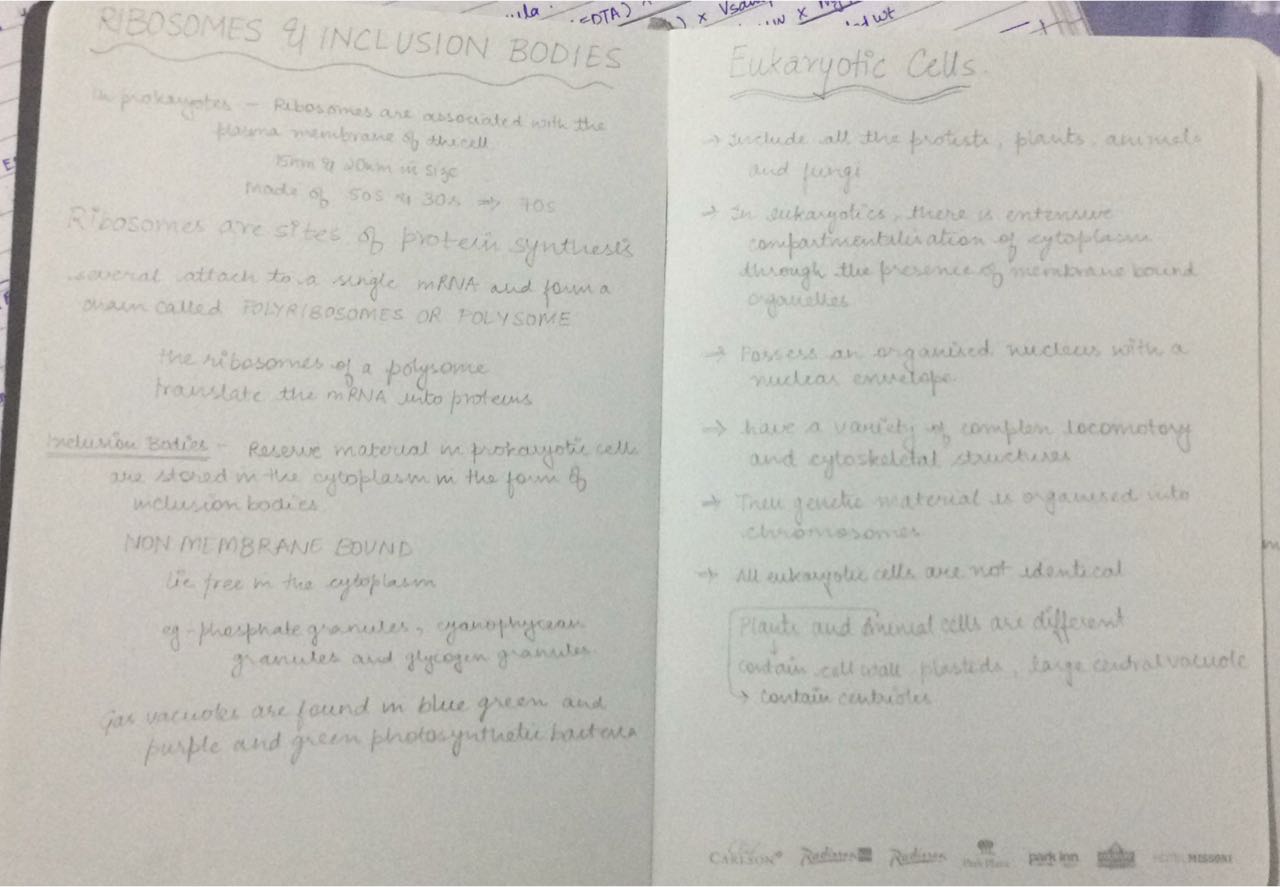 RIBOSOMES & INCLUSION BODIES
In prokayotes – Ribosomes are associated with the
plasma membrane of the cell
15nm & 20nm in size
Made of 50S & 30S ⇒ 70S
Ribosomes are sites of protein synthesis
several attach to a single mRNA and form a
chain called POLYRIBOSOMES OR POLYSOME
the ribosomes of a polysome
translate the mRNA into proteins
Inclusion Bodies – Reserve material in prokaryotic cells
are stored in the cytoplasm in the form of
inclusion bodies
NON MEMBRANE BOUND
lie free in the cytoplasm
eg - phosphate granules, cyanophycean
granules and glycogen granules.
Gas vacuoles are found in blue green and
purple and green photosynthetic bacteria
Eukaryotic Cells
→ Include all the protists, plants, animals
and fungi
→ In eukaryotics, there is extensive
compartmentalisation of cytoplasm
through the presence of membrane bound
organelles
→ Possess an organised nucleus with a
nuclear envelope
→ have a variety of complex locomotory
and cytoskeletal structures
→ Their genetic material is organised into
chromosomes
→ All eukaryotic cells are not identical
Plants and Animal cells are different
contain cell wall plastids, large central vacuole
→ contain centrioles
CARLSON
Radisson
Radisson
Park Plaza
park inn
HOTEL MISSONI